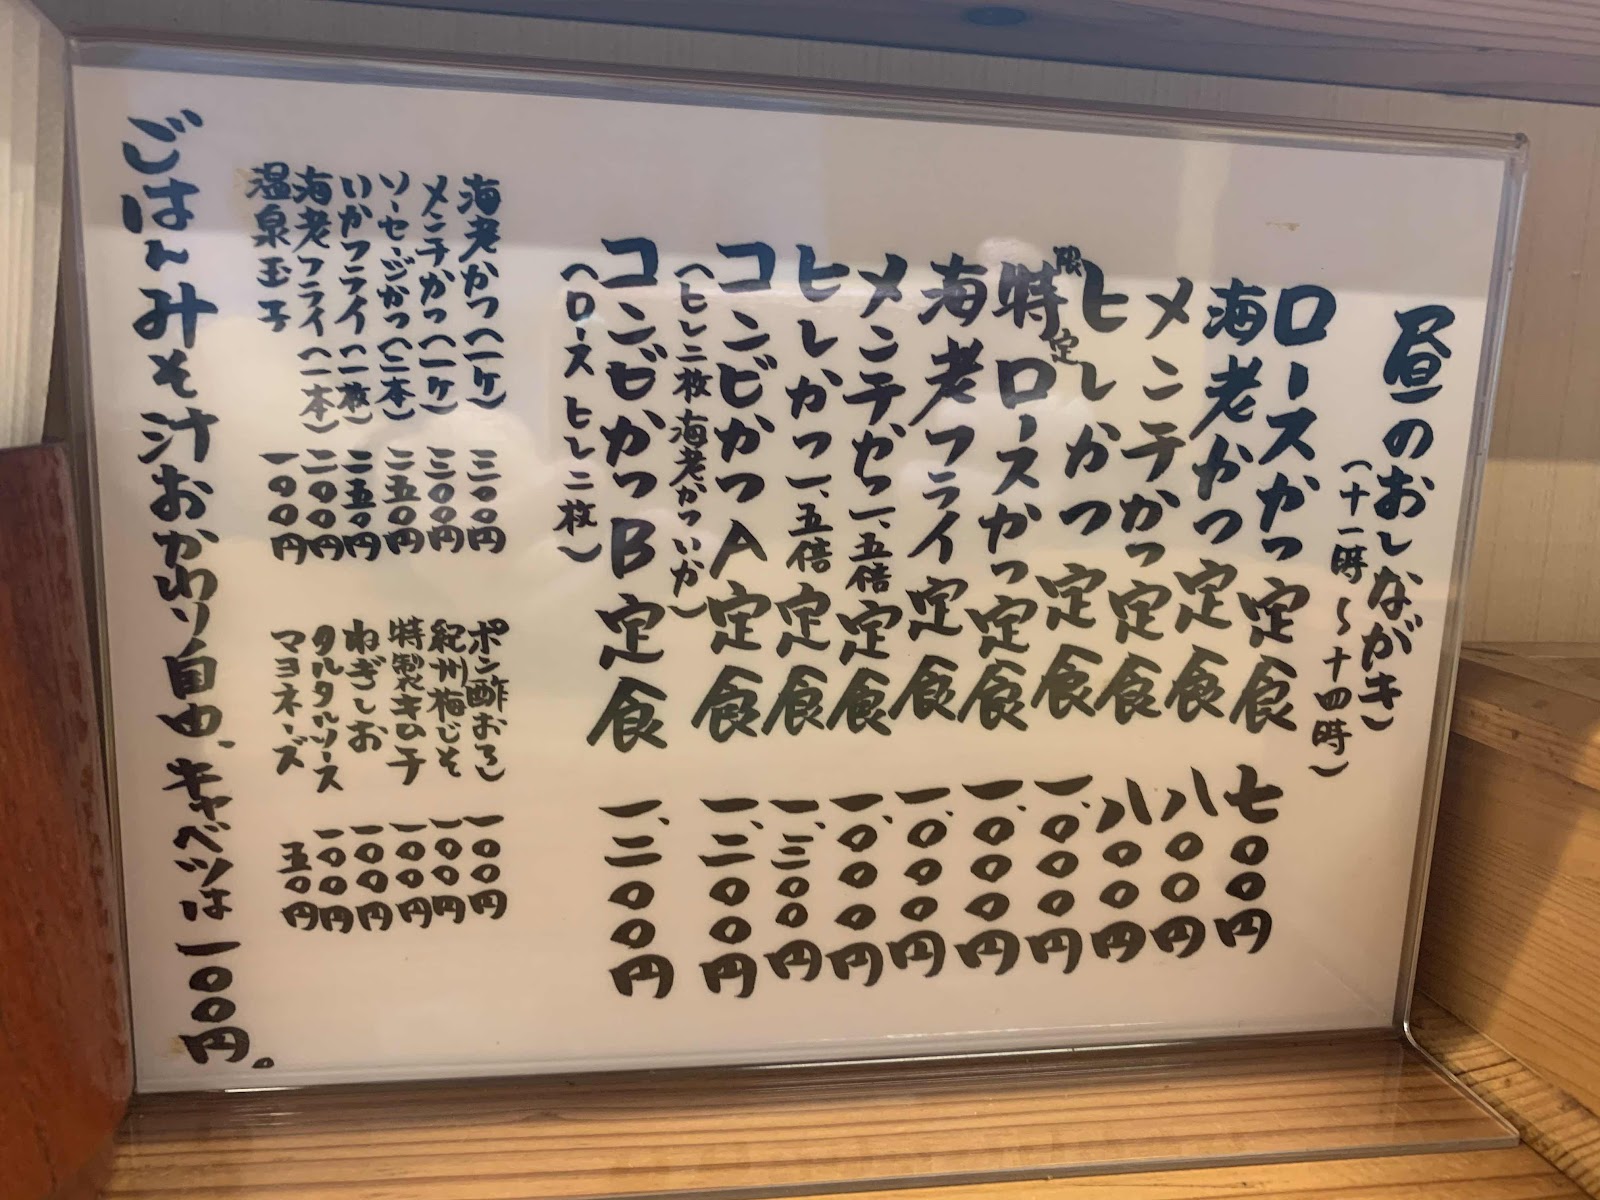 昼のおしながき
(十一時～十四時)
ロースかつ定食 七〇〇円
海老かつ定食 八〇〇円
メンチかつ定食 八〇〇円
ヒレかつ定食 一、〇〇〇円
限定
特ロースかつ定食 一、〇〇〇円
海老フライ定食 一、〇〇〇円
メンチかつ一、五倍定食 一、〇〇〇円
ヒレかつ一、五倍定食 一、三〇〇円
コンビかつA定食 一、二〇〇円
(ヒレ二枚海老かついか)
コンビかつB定食 一、二〇〇円
(ロースヒレ二枚)
海老かつ(一ヶ) 三〇〇円
メンチかつ(一ヶ) 三〇〇円
ソーセージかつ(二本) 二五〇円
いかフライ(一枚) 二五〇円
海老フライ(一本) 二〇〇円
温泉玉子 一〇〇円
ポン酢おろし 一〇〇円
紀州梅じそ 一〇〇円
特製キムチ 一〇〇円
ねぎしお 一〇〇円
タルタルソース 一〇〇円
マヨネーズ 五〇円
ごはんみそ汁おかわり自由、キャベツは一〇〇円。